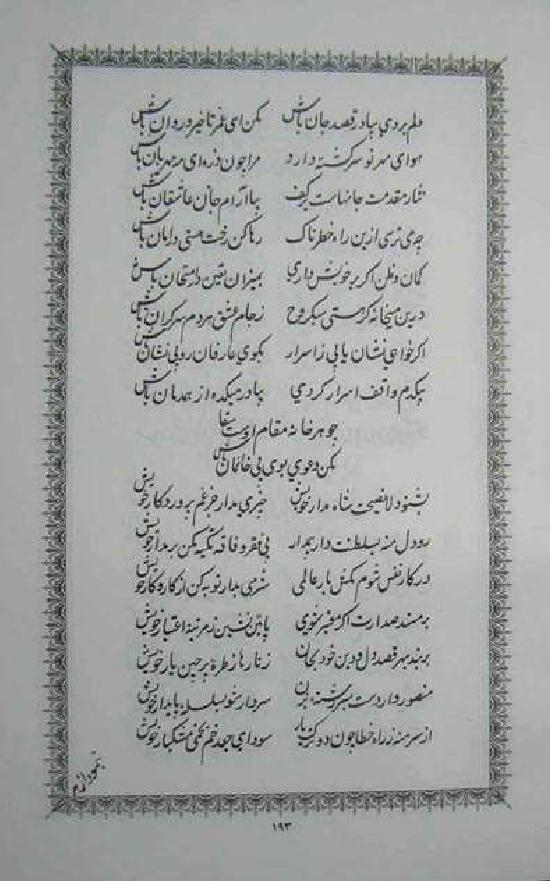 دلم بردی بیا در قصد جان باش بکن ای عمر تاخیر و روان باش
هوای مهر تو سرگشته دارد مرا چون ذره‌ای مه مهربان باش
نثار مقدمت جانهاست بر کف بیا آرام جان عاشقان باش
چه می ترسی ازین راه خطرناک رها کن رخت هستی در امان باش
گمان و ظن اگر بر خویش داری بمیزان یقین در امتحان باش
درین میخانه گر مستی سبکروح ز جام عشق هر دم سرگران باش
اگر خواهی نشان یابی ز اسرار بکوی عارفان رو بی نشان باش
بیکدم واقف اسرار کردی بیا در میکده از همدمان باش
چو هر خانه مقام اوست
مکن دعوی بوی بی خانمان باش
بشنو دلا نصیحت شاه مدار خویش چیزی مدار جز غم پروردگار خویش
رو دل منه بسلطنت دار بیمدار بی فقر و فاقه تکیه مکن بر مدار خویش
در کار نفس شوم مکش بار عالمی شرمی بدار توبه کن از کار و کار خویش
بر مسند صدارت اگر معتبر شوی پائین نشین ز مرتبه اعتبار خویش
بربند بهر قصد دل و دین خود میان زنار ما ز طره پرچین یار خویش
منصور وار دست سررشته بزن سر دار شو بسلسله پایدار خویش
از سر منه ز راه خطا چون دو کیسه بار سودای جعد خم بخم مشکبار خویش
۱۹۳